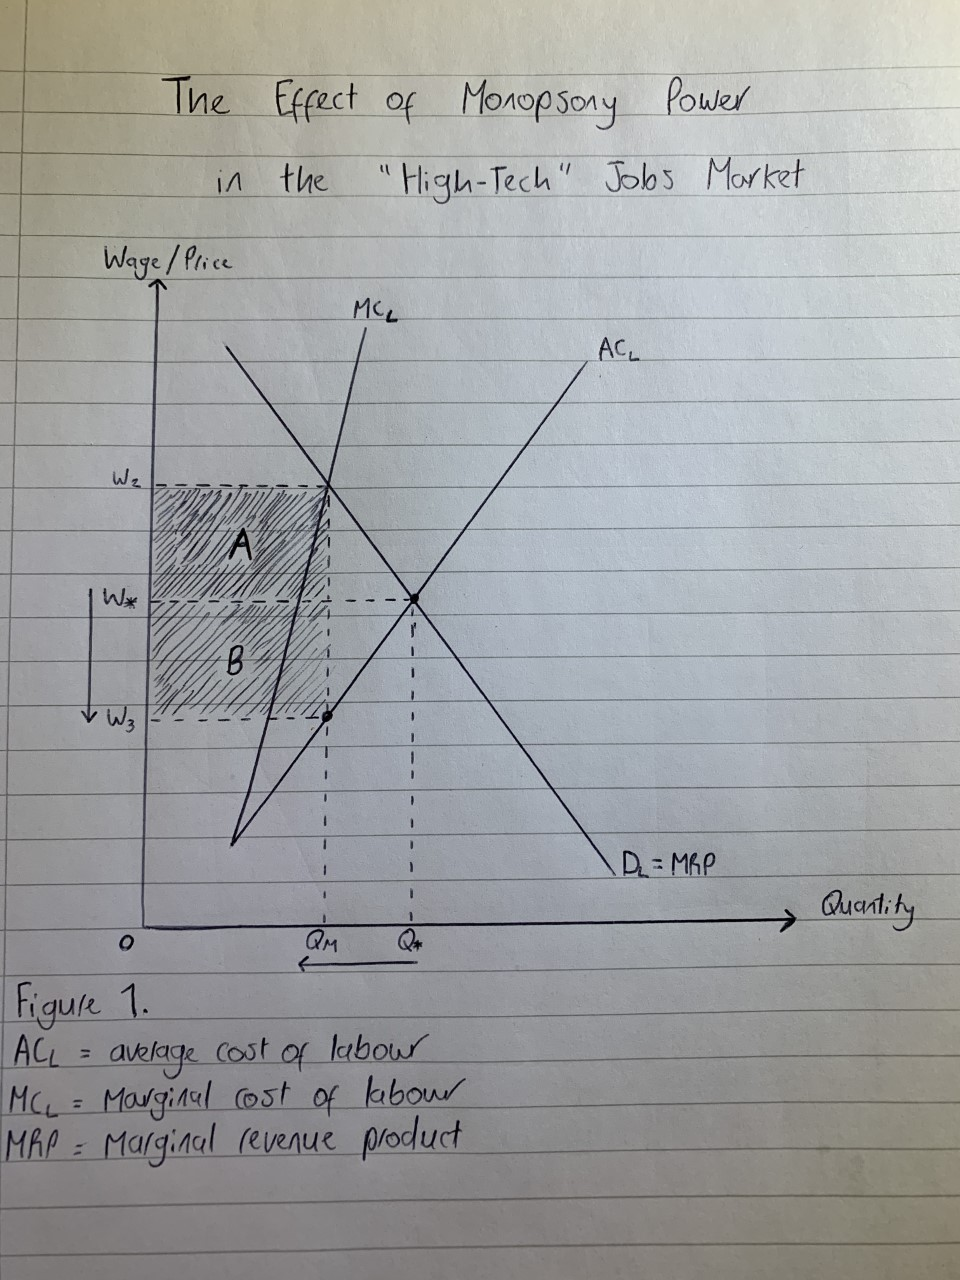 The Effect of Monopsony Power
in the "High-Tech" Jobs Market
Wage/Price
MCL
ACL
W2
A
W*
B
W3
DL = MRP
Quantity
O
QM
Q*
Figure 1.
ACL = average cost of labour
MCL = Marginal cost of labour
MRP = Marginal revenue product